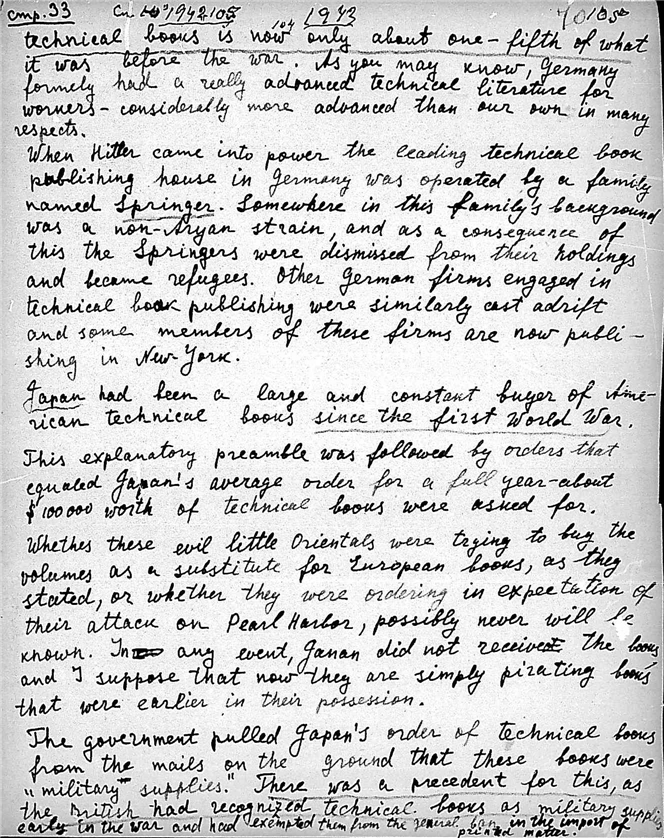 cmp. 33 1942 1943 105
technical books is now only about one-fifth of what
it was before the war. As you may know, Germany
formely had a really advanced technical literature for
workers - considerably more advanced than our own in many
respects.
When Hitler came into power the leading technical book
publishing house in Germany was operated by a family
named Springer. Somewhere in this family's background
was a non-Aryan strain, and as a consequence of
this the Springers were dismissed from their holdings
and became refugees. Other German firms engaged in
technical book publishing were similarly cast adrift
and some members of these firms are now publi-
shing in New-York.
Japan had been a large and constant buyer of Ame-
rican technical books since the first World War.
This explanatory preamble was followed by orders that
equaled Japan's average order for a full year-about
$100000 worth of technical books were asked for.
Whether these evil little Orientals were trying to buy the
volumes as a substitute for European books, as they
stated, or whether they were ordering in expectation of
their attack on Pearl Harbor, possibly never will be
known. In any event, Japan did not receive the books
and I suppose that now they are simply pirating books
that were earlier in their possession.
The government pulled Japan's order of technical books
from the mails on the ground that these books were
"military supplies." There was a precedent for this, as
the British had recognized technical books as military supplies
early in the war and had exempted them from the general ban in the import of
printed matter.